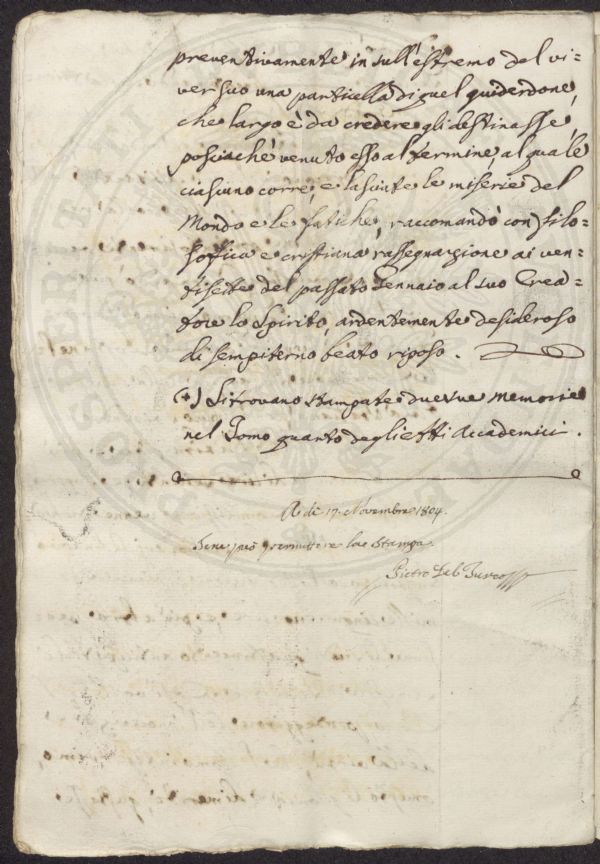 preventivamente in sull'estremo del vi=
ver suo una particella di quel guiderdone,
che largo è da credere gli destinasse,
posciachè venuto esso al termine, al quale
ciascuno corre, e lasciate le miserie del
Mondo e le fatiche, raccomandò con filo=
soffica e cristiana rassegnazione ai ven=
tisette del passato Gennaio al suo Crea=
tore lo Spirito, ardentemente desideroso
di sempiterno beato riposo.
(*) Si trovano stampate due sue Memorie
nel Tomo quarto degli Atti Accademici.
A dì 17. Novembre 1804.
Se ne può permettere la Stampa.
Pietro Del